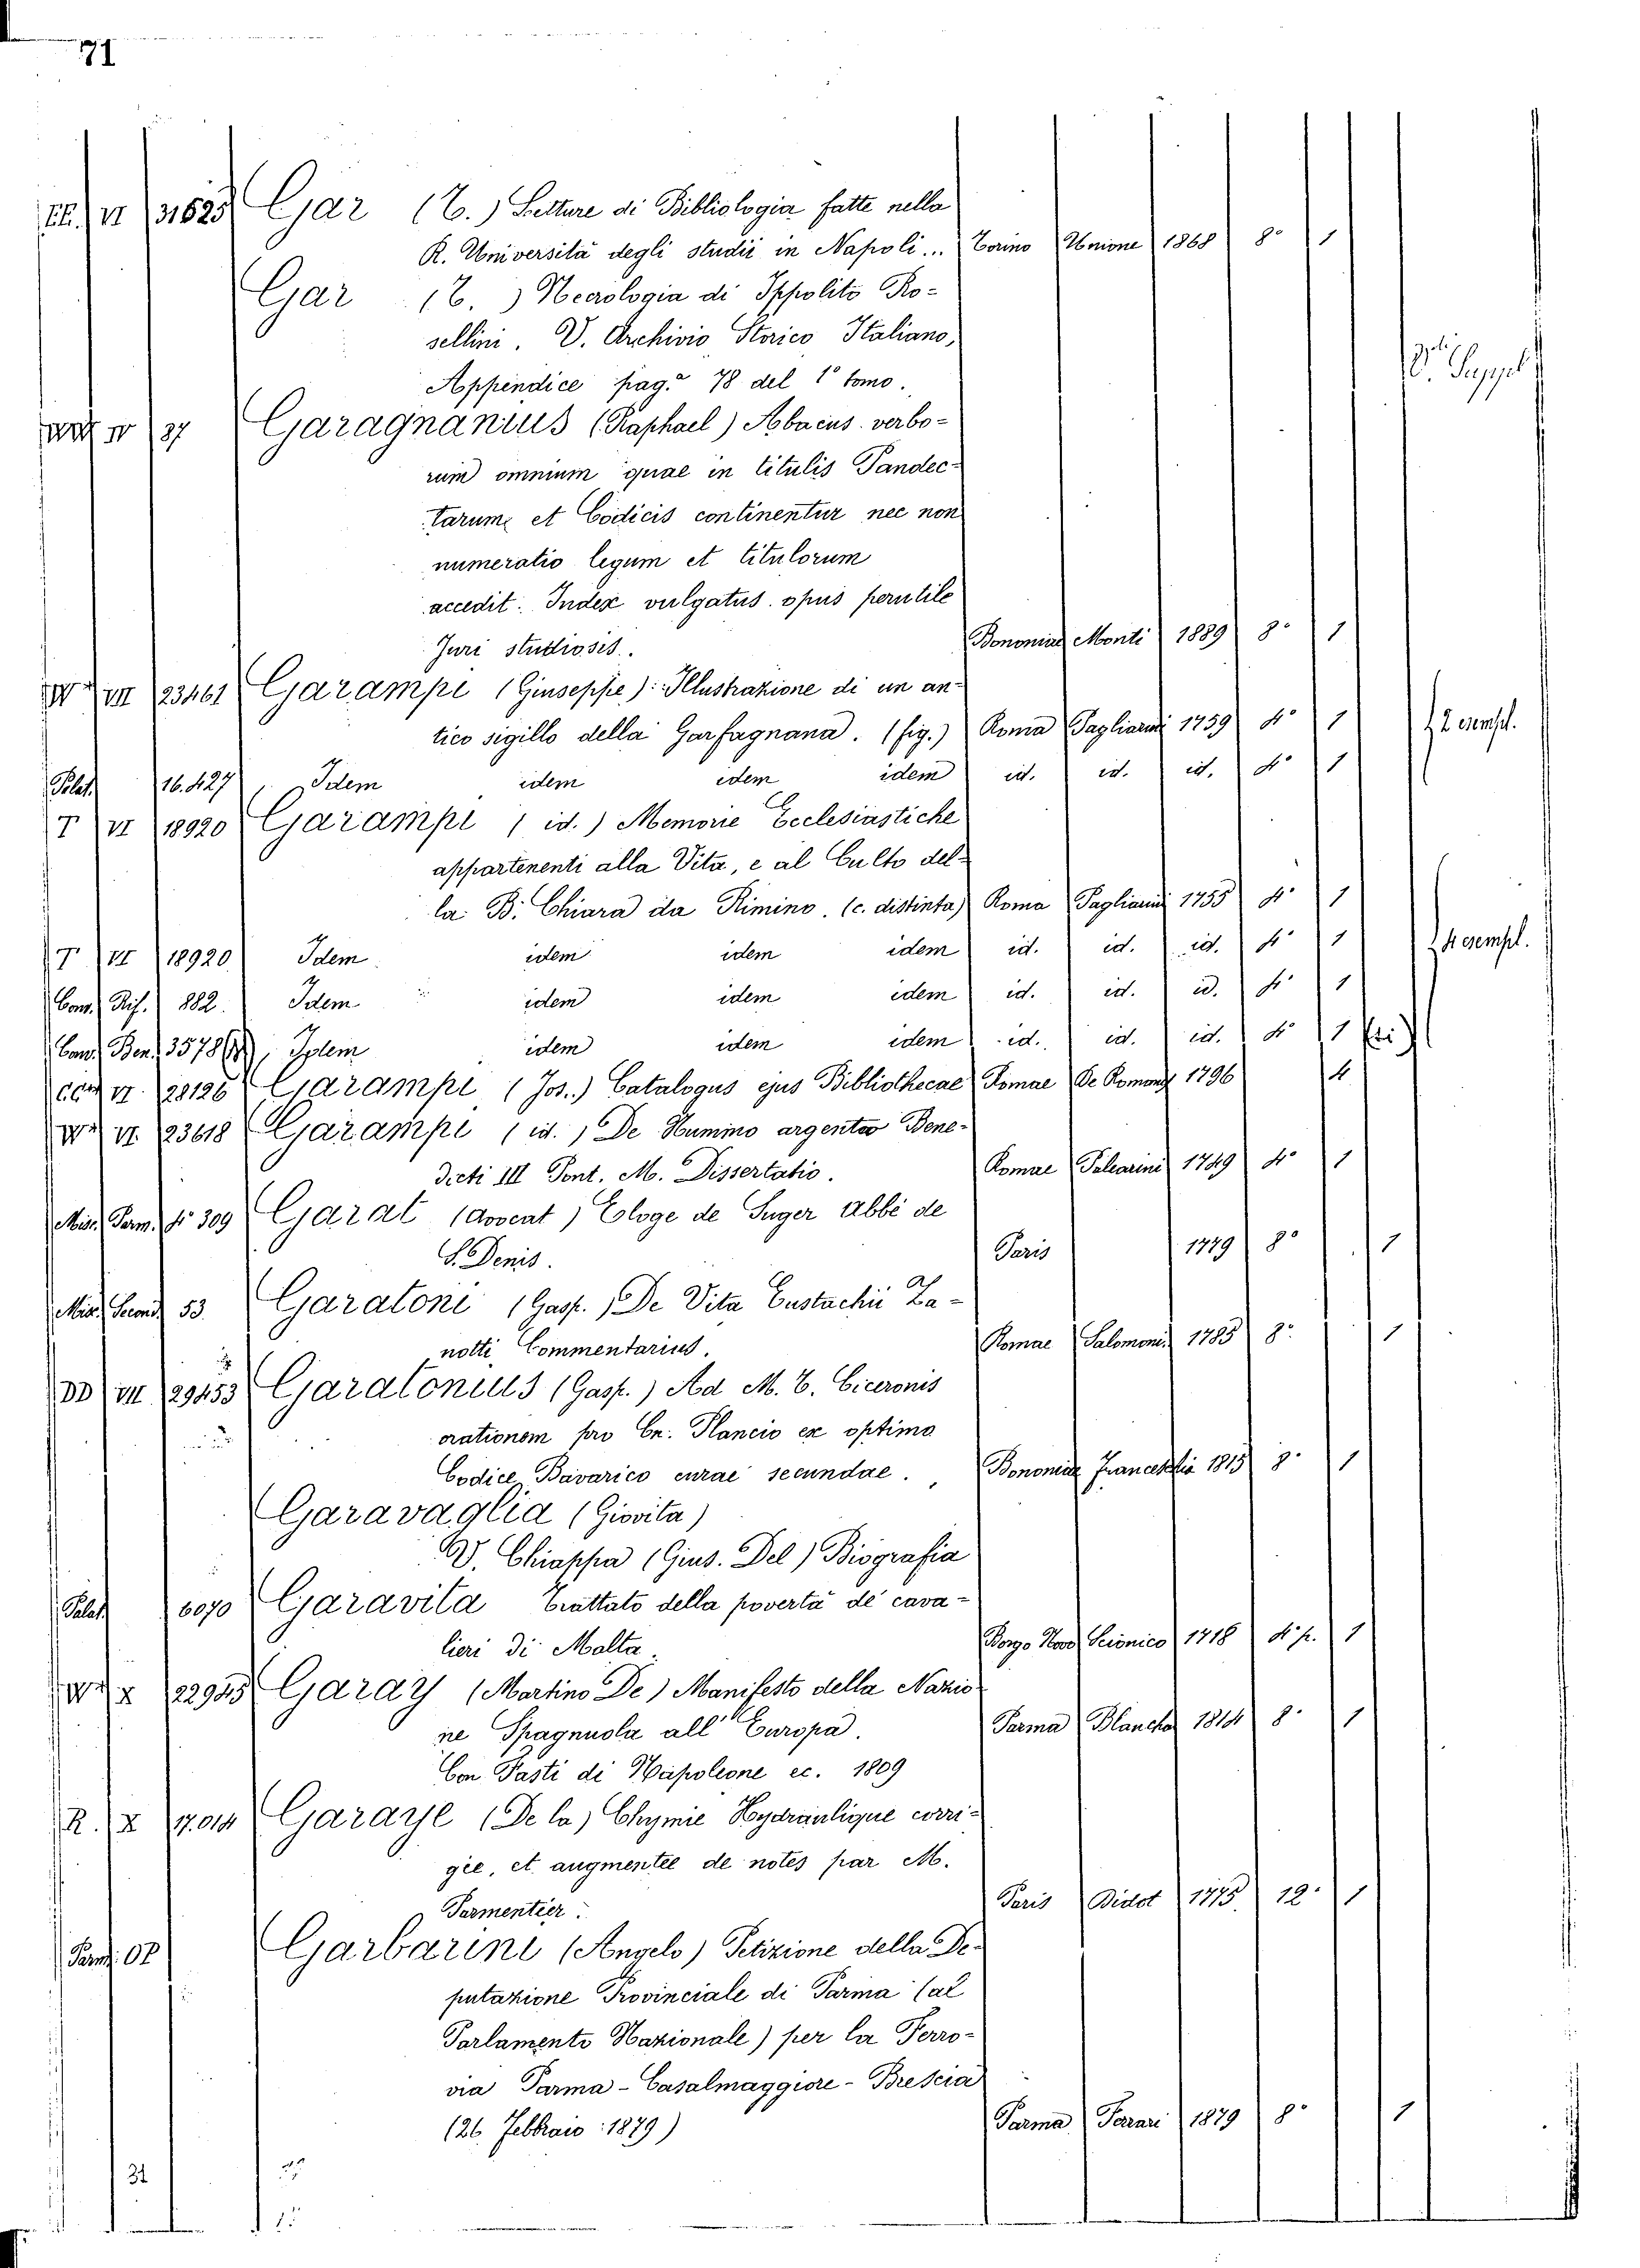 71
VI 31625 Gar (T.) Letture di Bibliologia fatte nella
R. Università degli studii in Napoli... Torino Unione 1868 8° 1
Gar (T.) Necrologia di Ippolito Ro-
sellini. V. Archivio Storico Italiano,
Appendice pag.ª 78 del 1° tomo. V. Suppl.
IV 37 Garagnanius (Raphael) Abacus verbo-
rum omnium quae in titulis Pandec-
tarum et Codicis continentur nec non
numeratio legum et titulorum
accedit. Index vulgatus. opus perutile
Juri studiosis. Bononiae Monti 1889 8° 1
VII 23461 Garampi (Giuseppe): Illustrazione di un an-
tico sigillo della Garfagnana. (fig.) Roma Pagliarini 1759 4° 1 2 esempl.
Palat. 16.427 Idem idem idem idem id. id. id. 4° 1
T VI 18920 Garampi (id.) Memorie Ecclesiastiche
appartenenti alla Vita, e al Culto del-
la B. Chiara da Rimino. (c. distinta) Roma Pagliarini 1755 4° 1
T VI 18920 Idem idem idem idem id. id. id. 4° 1 4 esempl.
Conv. Rif. 882. Idem idem idem idem id. id. id. 4° 1
Conv. Ben. 3578 Idem idem idem idem id. id. id. 4° 1
VI. 28126 Garampi (Jos.) Catalogus ejus Bibliothecae Romae De Romanis 1796 4
VI. 23618 Garampi (id.) De Nummo argenteo Bene-
dicti III Pont. M. Dissertatio. Romae Palearini 1749 4° 1
Misc. Parm. 4° 309 Garat (Avocat) Eloge de Suger Abbé de
S. Denis. Paris 1779 8° 1
Misc. Second. 53. Garatoni (Gasp.) De Vita Eustachii Za-
notti Commentarius. Romae Salomoni 1785 8° 1
DD VII 29453 Garatonius (Gasp.) Ad M. T. Ciceronis
orationem pro Cn. Plancio ex optimo
Codice Bavarico curae secundae. Bononiae 1815 8° 1
Garavaglia (Giovita)
V. Chiappa (Gius. Del) Biografia
Palat. 6070 Garavita Trattato della povertà de' cava-
lieri di Malta. Borgo Novo Scionico 1718 4° p. 1
X 22945 Garay (Martino De) Manifesto della Nazio-
ne Spagnuola all' Europa. Parma Blanchon 1814 8° 1
Con Fasti di Napoleone ec. 1809
R. X 17.014 Garaye (De la) Chymie Hydraulique corri-
gée, et augmentée de notes par M.
Parmentier. Paris Didot 1775 12° 1
Garbarini (Angelo) Petizione della De-
putazione Provinciale di Parma (al
Parlamento Nazionale) per la Ferro-
via Parma - Casalmaggiore - Brescia
(26 Febbraio 1879) Parma Ferrari 1879 8° 1
31